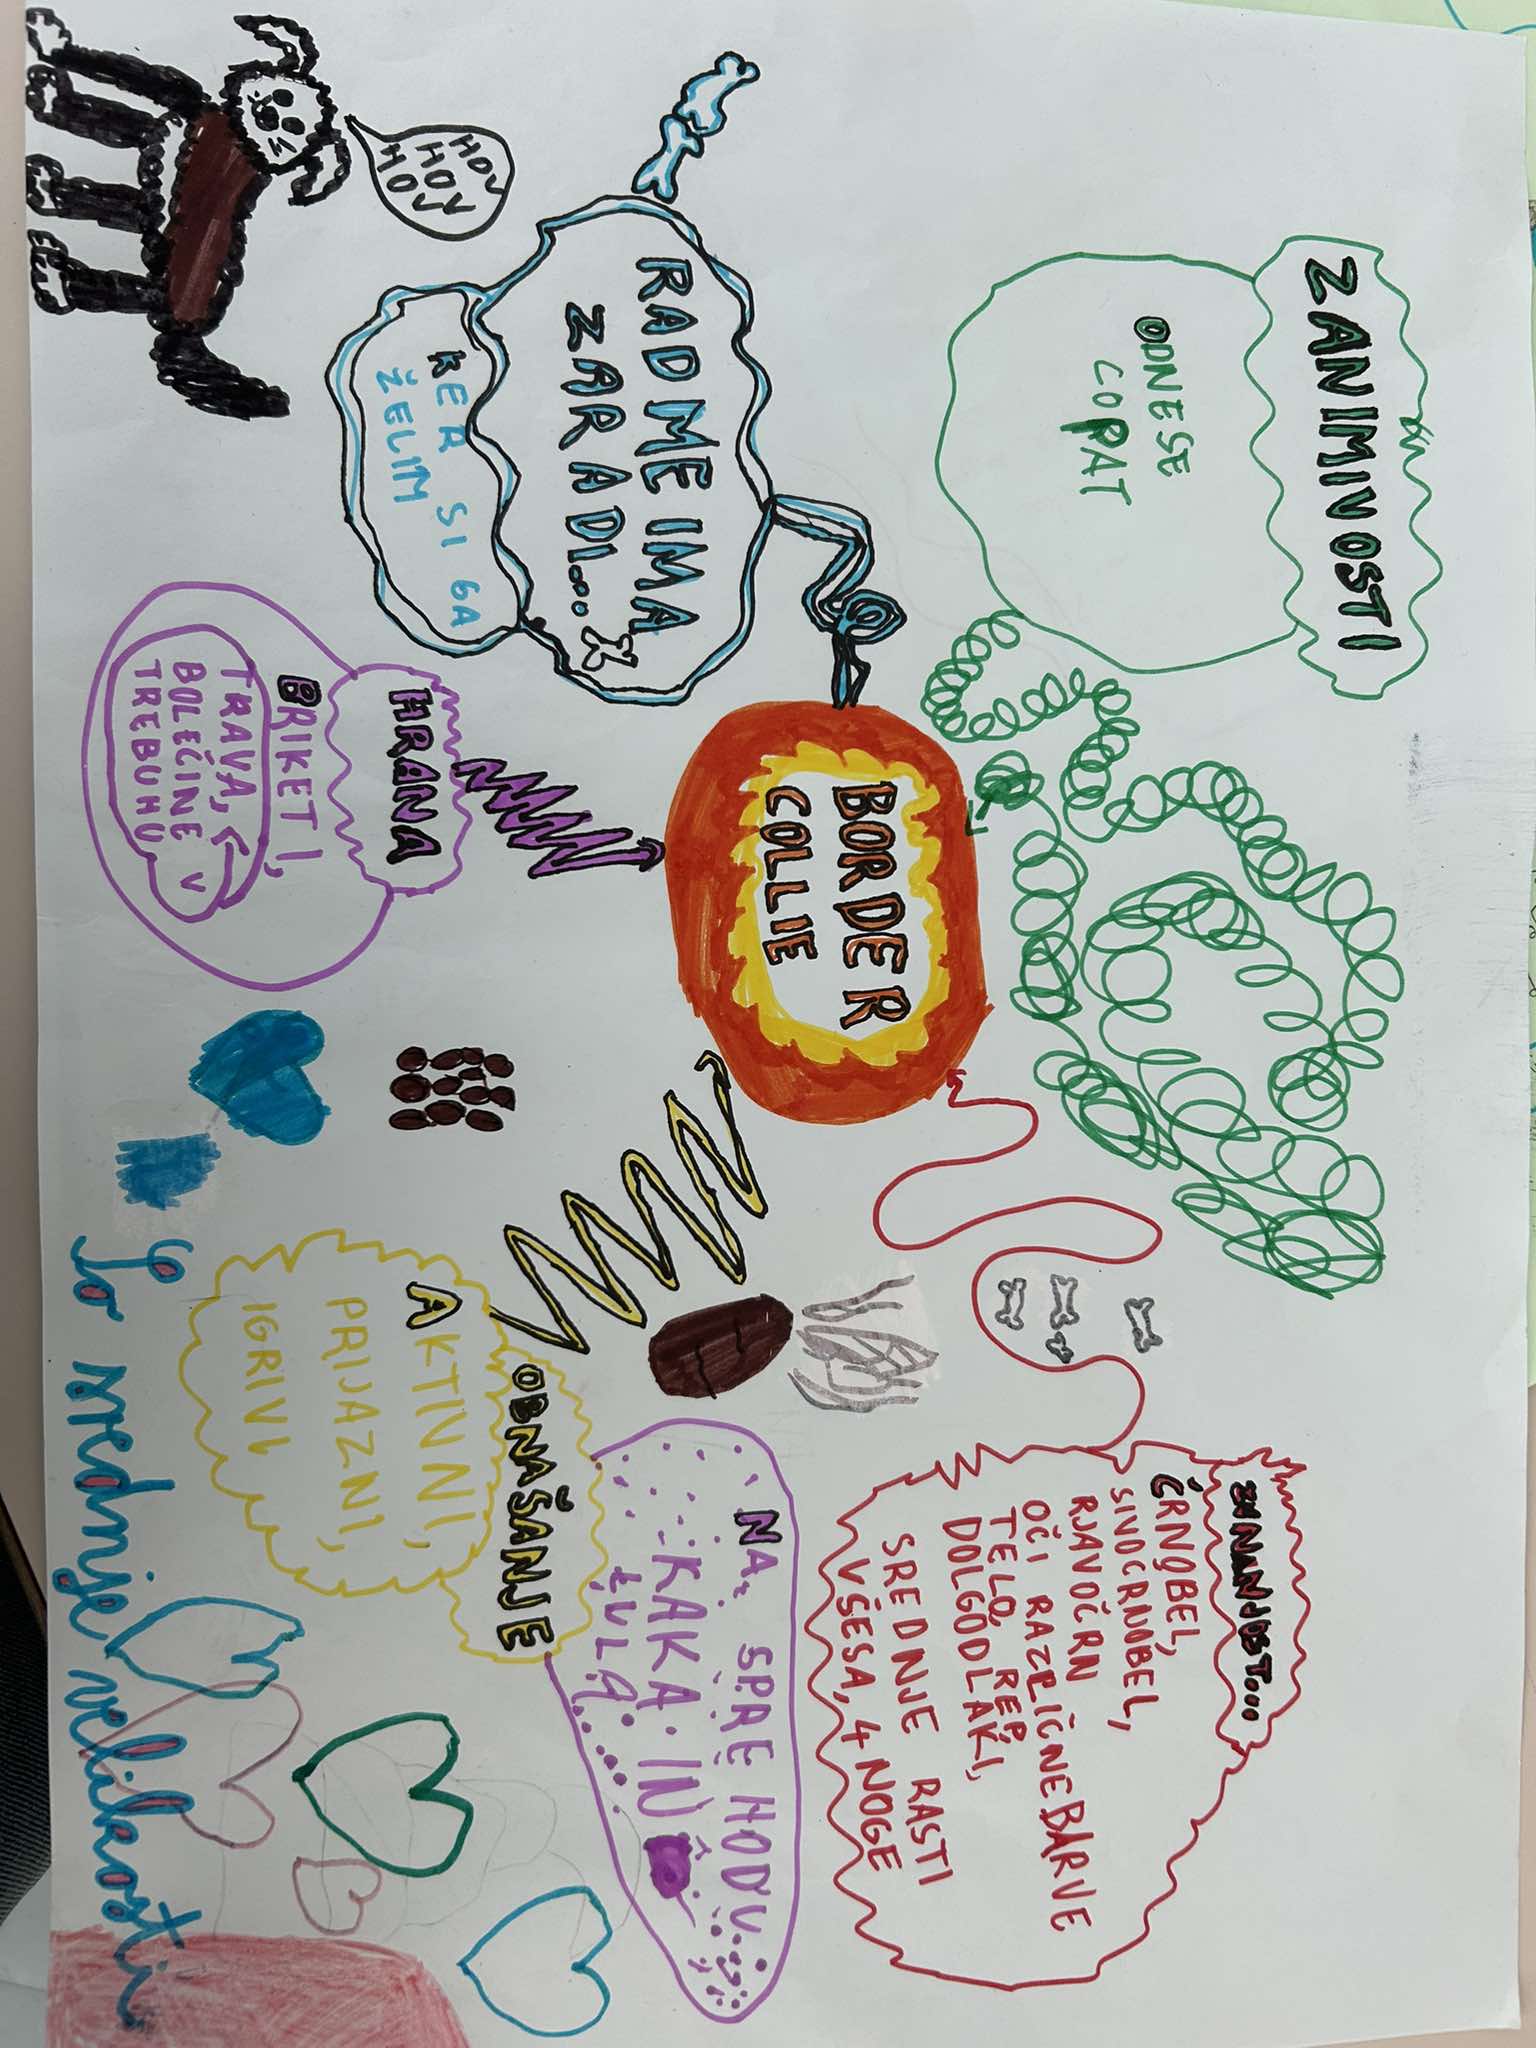 ZANIMIVOSTI
ODNESE
COPAT
HOV
HOV
HOV
RAD ME IMA
ZARADI...
KER SI GA
ŽELIM
BORDER
COLLIE
HRANA
BRIKETI,
TRAVA,
BOLEČINE V
TREBUHU
ZUNANJOST...
ČRNOBEL,
SIVOČRNOBEL,
RJAVOČRN
OČI RAZLIČNE BARVE
TELO, REP,
DOLGODLAKI,
SREDNJE RASTI
UŠESA, 4 NOGE
OBNAŠANJE
AKTIVNI,
PRIJAZNI,
IGRIVI
NA SPREHODU
KAKA IN
LULA
So srednje velikosti